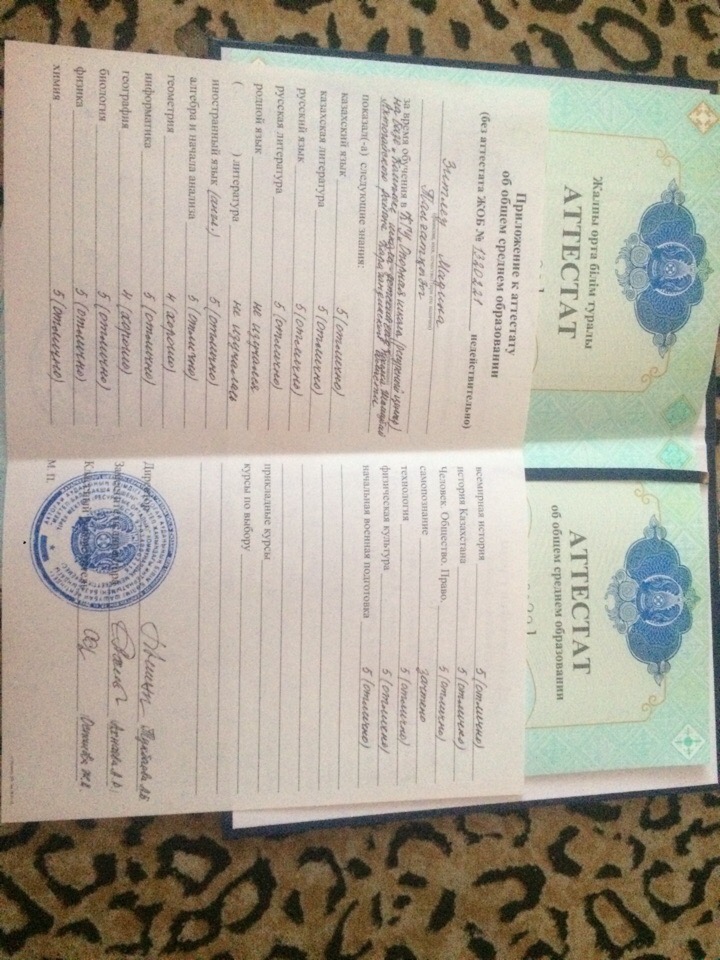 Жалпы орта білім туралы
АТТЕСТАТ
АТТЕСТАТ
об общем среднем образовании
Приложение к аттестату
об общем среднем образовании
(без аттестата ЖОБ № 1330221 недействительно)
Мадина
за время обучения в КГУ "Опорная школа (ресурсный центр)
на базе
показал(-а) следующие знания:
казахский язык 5 (отлично)
казахская литература 5 (отлично)
русский язык 5 (отлично)
русская литература 5 (отлично)
родной язык не изучался
( ) литература не изучалась
иностранный язык (англ.) 5 (отлично)
алгебра и начала анализа 5 (отлично)
геометрия 4 (хорошо)
информатика 5 (отлично)
география 4 (хорошо)
биология 5 (отлично)
физика 5 (отлично)
химия 5 (отлично)
всемирная история 5 (отлично)
история Казахстана 5 (отлично)
Человек. Общество. Право. 5 (отлично)
самопознание зачтено
технология 5 (отлично)
физическая культура 5 (отлично)
начальная военная подготовка 5 (отлично)
прикладные курсы
курсы по выбору
Директор
М. П.